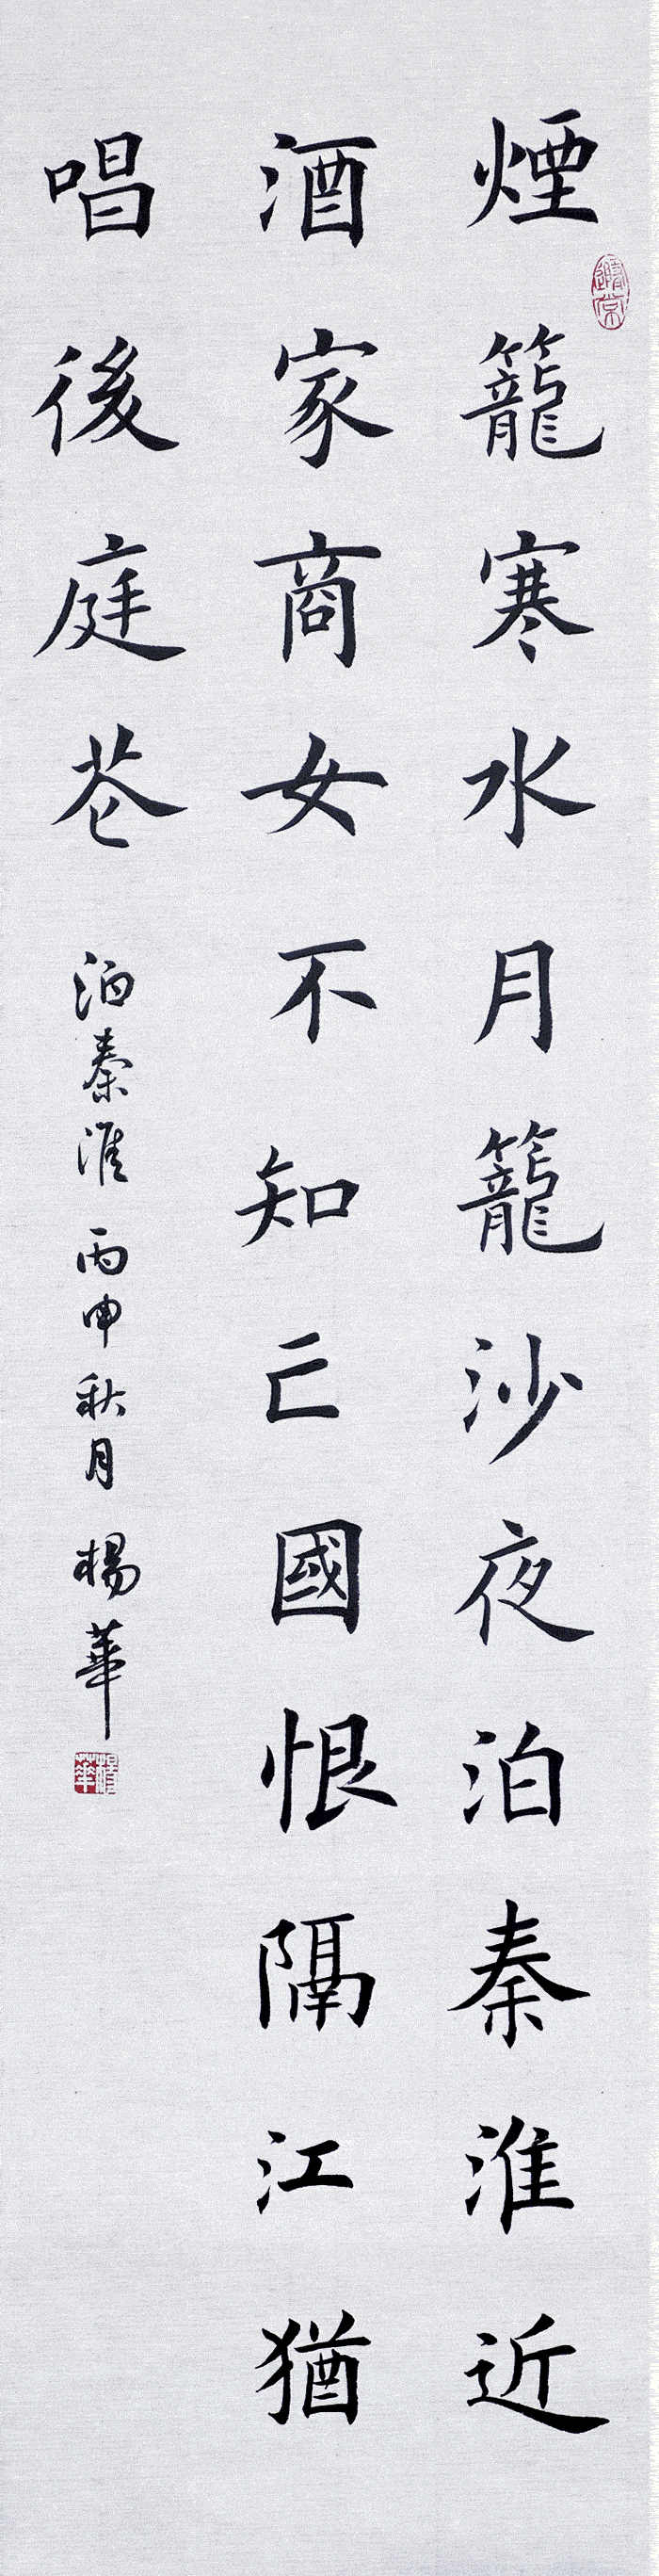 煙籠寒水月籠沙夜泊秦淮近
酒家商女不知亡國恨隔江猶
唱後庭花
泊秦淮 丙申秋月 楊華
楊華